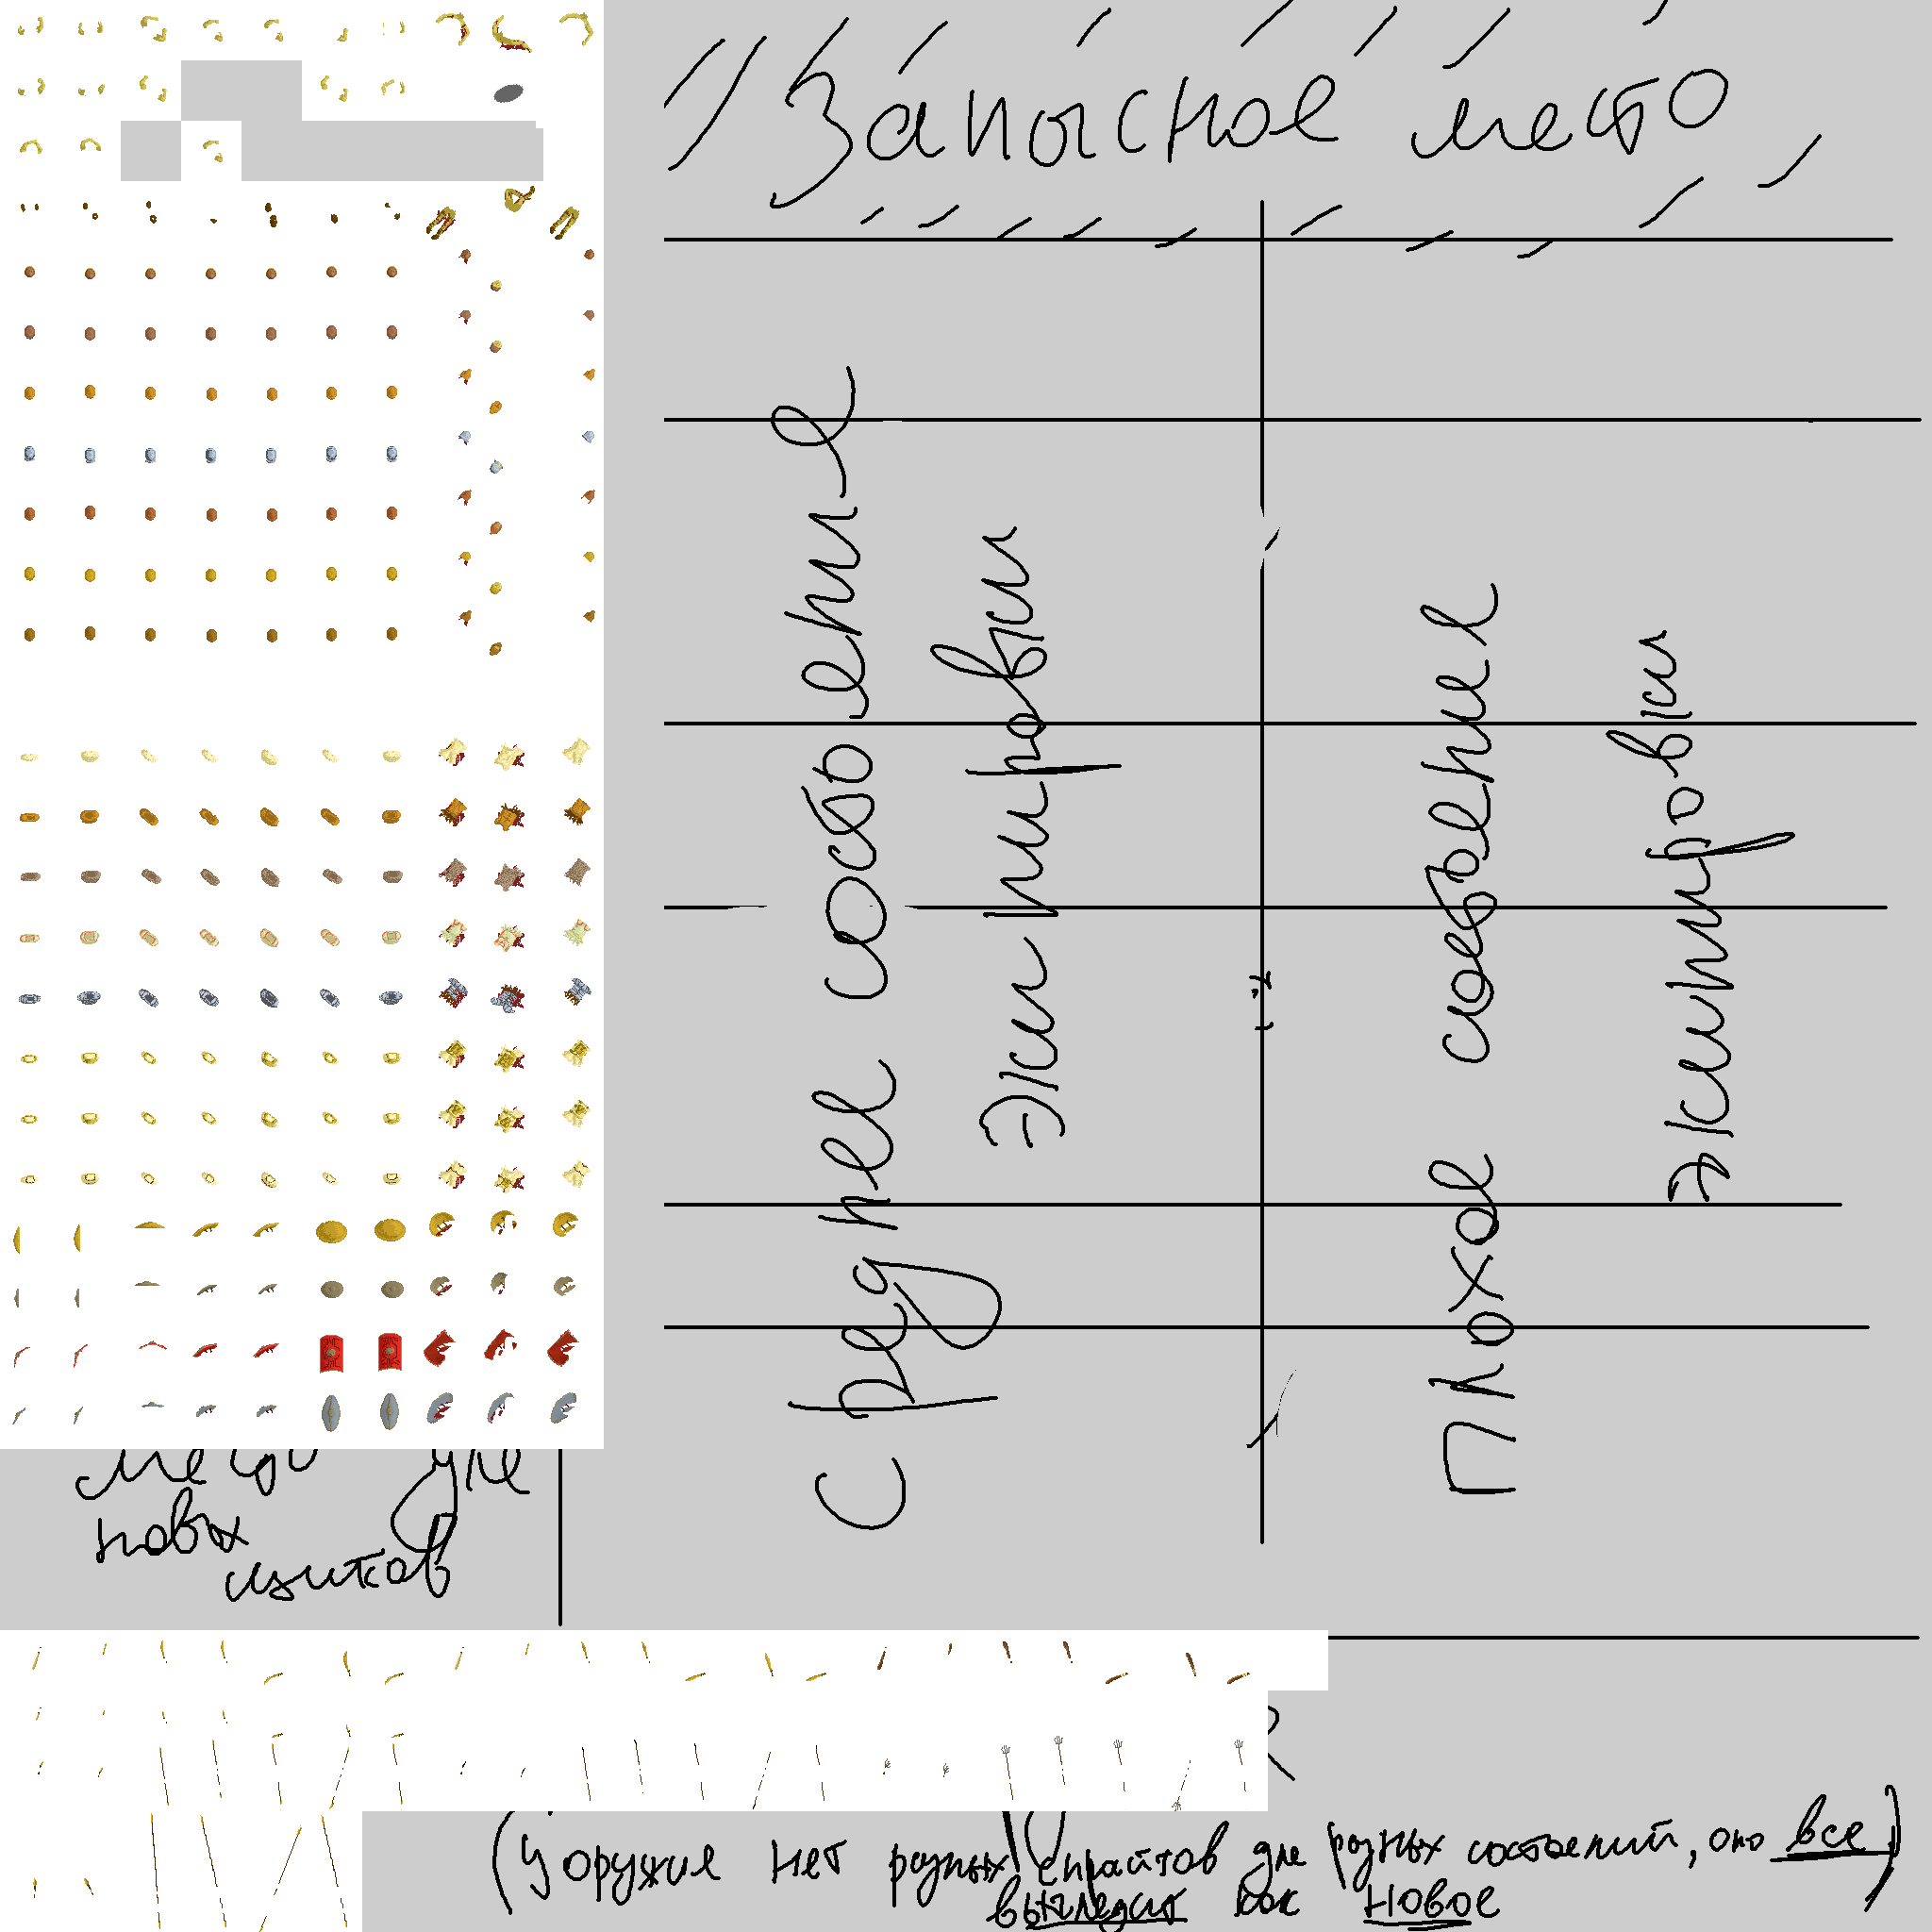 Запысное место
Среднее состоение
экипировки
Плохое состоение
экипировки
место для
новых
щитков
(У оружия нет разных спрайтов для разных состоений, оно все)
выглядит как новое